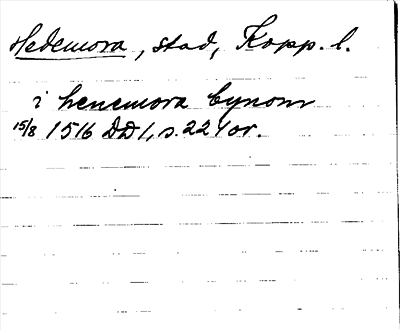 Hedemora, stad, Kopp. l.
i henemora bynom
15/8 1516 DD 1, s. 221 or.